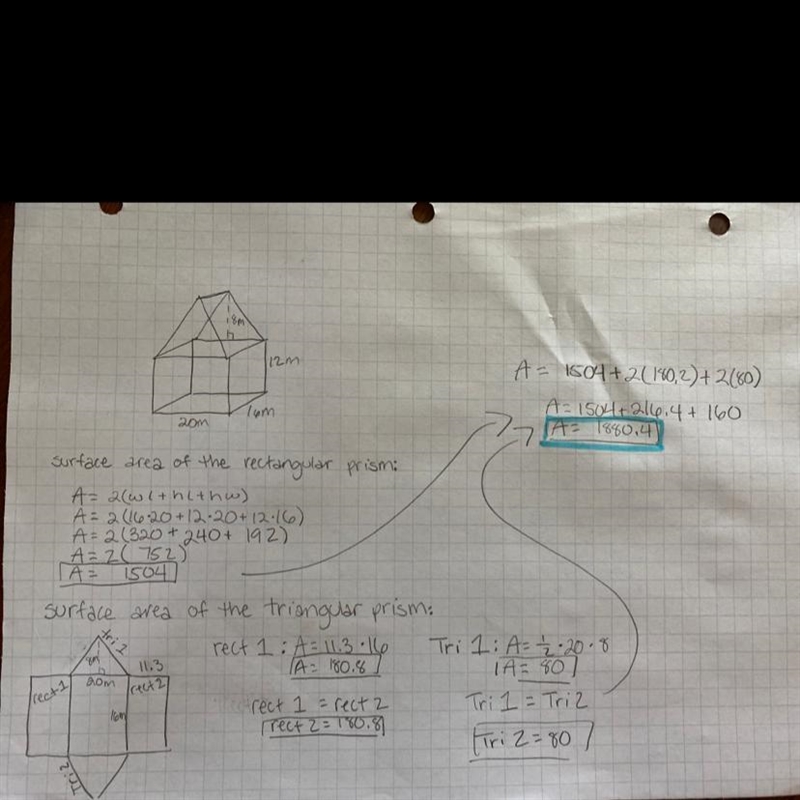 8m
12m
16m
20m
A = 1504 + 2(180.2) + 2(80)
A = 1504 + 216.4 + 160
A = 1880.4
surface area of the rectangular prism:
A = 2(wl + hl + hw)
A = 2(16·20 + 12·20 + 12·16)
A = 2(320 + 240 + 192)
A = 2( 752)
A = 1504
surface area of the triangular prism:
Tri 2
8m
11.3
20m
rect 1
rect 2
16m
Tri 2
rect 1 : A = 11.3 · 16
A = 180.8
rect 1 = rect 2
rect 2 = 180.8
Tri 1 : A = 1/2 · 20 · 8
A = 80
Tri 1 = Tri 2
Tri 2 = 80